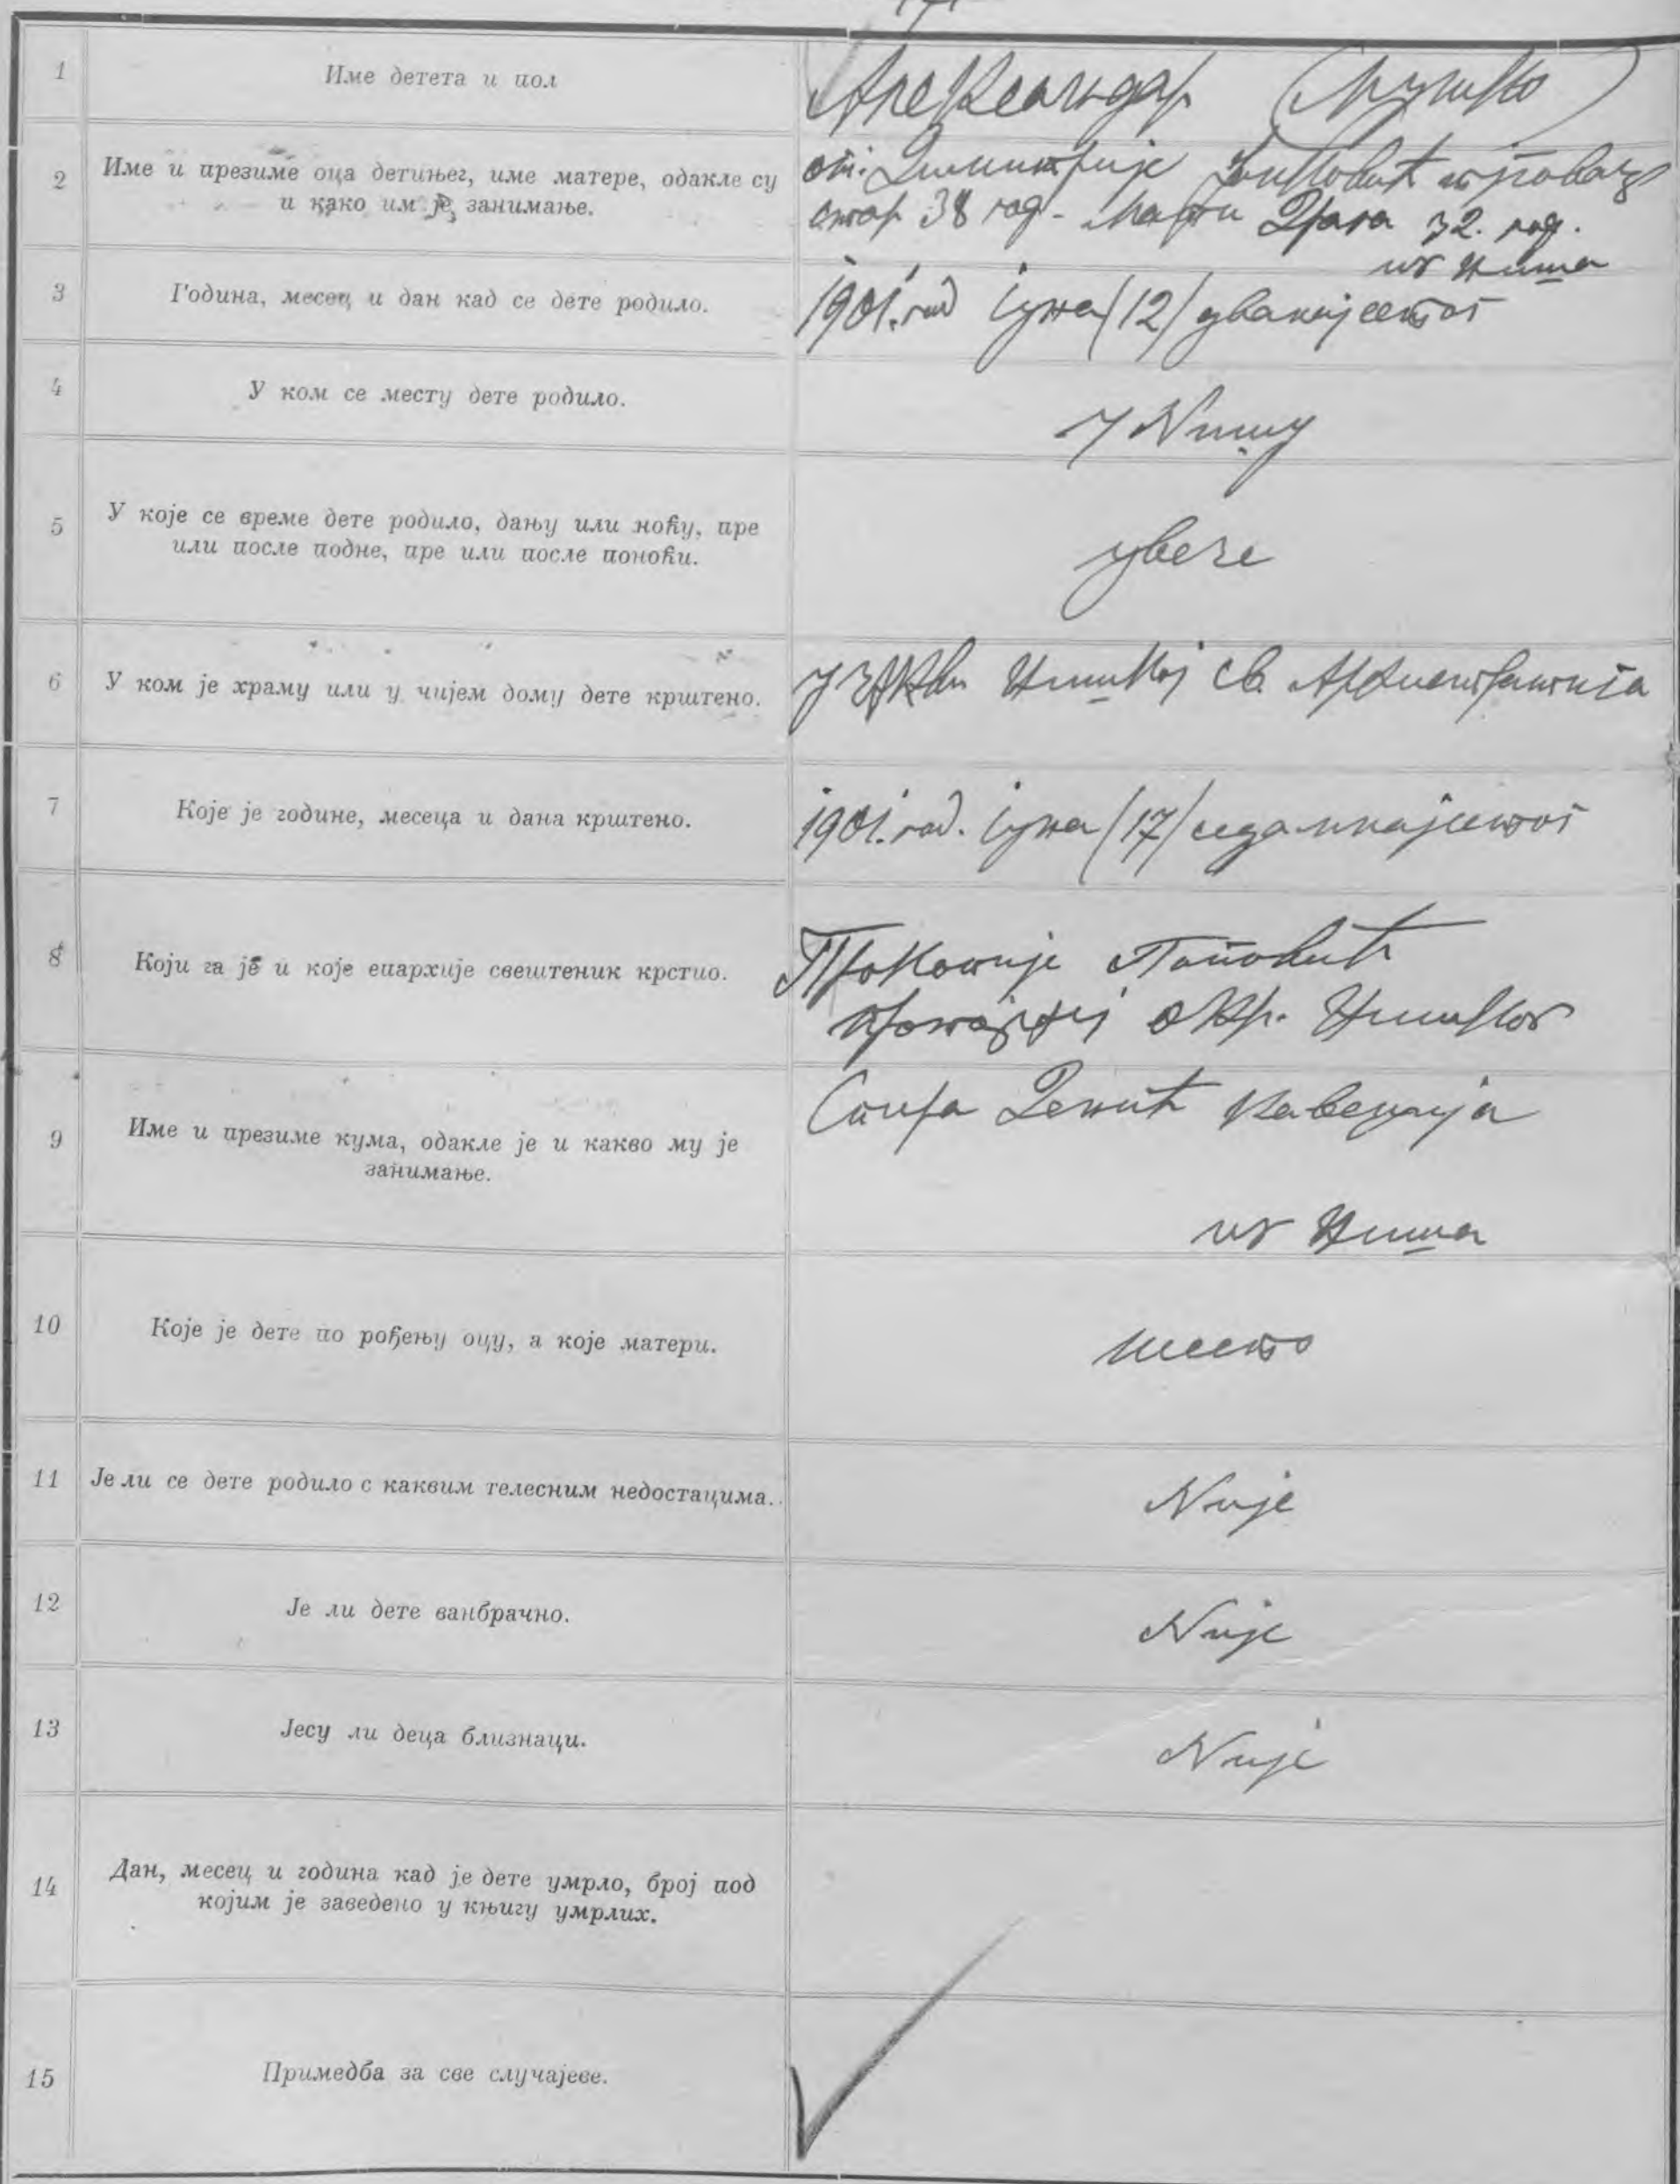 1
Име детета и пол
Александар (мушко)
2
Име и презиме оца детињег, име матере, одакле су
и како им је занимање.
от. Димитрије трговац
стар 38 год. мати 32. год.
из Ниша
3
Година, месец и дан кад се дете родило.
1901. год јуна (12) дванајестог
4
У ком се месту дете родило.
у Нишу
5
У које се време дете родило, дању или ноћу, пре
или после подне, пре или после поноћи.
увече
6
У ком је храму или у чијем дому дете крштено.
у цркви Нишкој св. Архистратига
7
Које је године, месеца и дана крштено.
1901. год. јуна (17) седамнајестог
8
Који га је и које епархије свештеник крстио.
Прокопије Поповић
протојереј окр. Нишког
9
Име и презиме кума, одакле је и какво му је
занимање.
Спира Денић кавеџија
из Ниша
10
Које је дете по рођењу оцу, а које матери.
шесто
11
Је ли се дете родило с каквим телесним недостацима.
Није
12
Је ли дете ванбрачно.
Није
13
Јесу ли деца близнаци.
Није
14
Дан, месец и година кад је дете умрло, број под
којим је заведено у књигу умрлих.
15
Примедба за све случајеве.